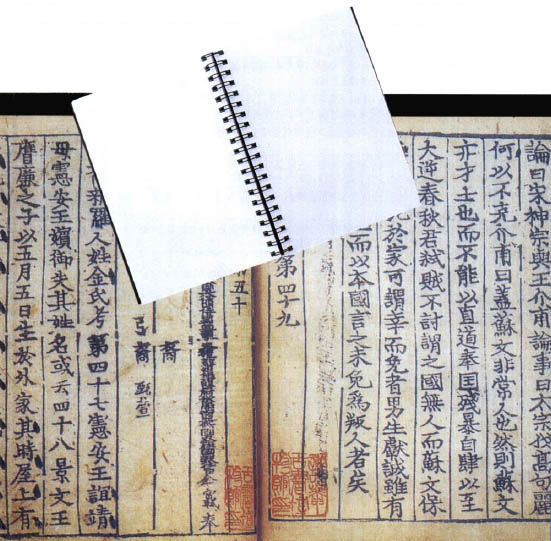 論曰宋神宗與王介甫論事曰太宗伐髙句麗
何以不克介甫曰盖蘇文非常人也然則蘇文
亦才士也而不能以直道奉国残暴自肆以至
大逆春秋君弑賊不討謂之國無人而蘇文保
於家可謂幸而免者男生獻誠雖有
而以本國言之未免爲叛人者矣
第四十九
五十
裔
弓裔 甄萱
新羅人姓金氏考第四十七憲安王誼靖
母憲安王嬪御失其姓名或云四十八景文王
膺廉之子以五月五日生於外家其時屋上有